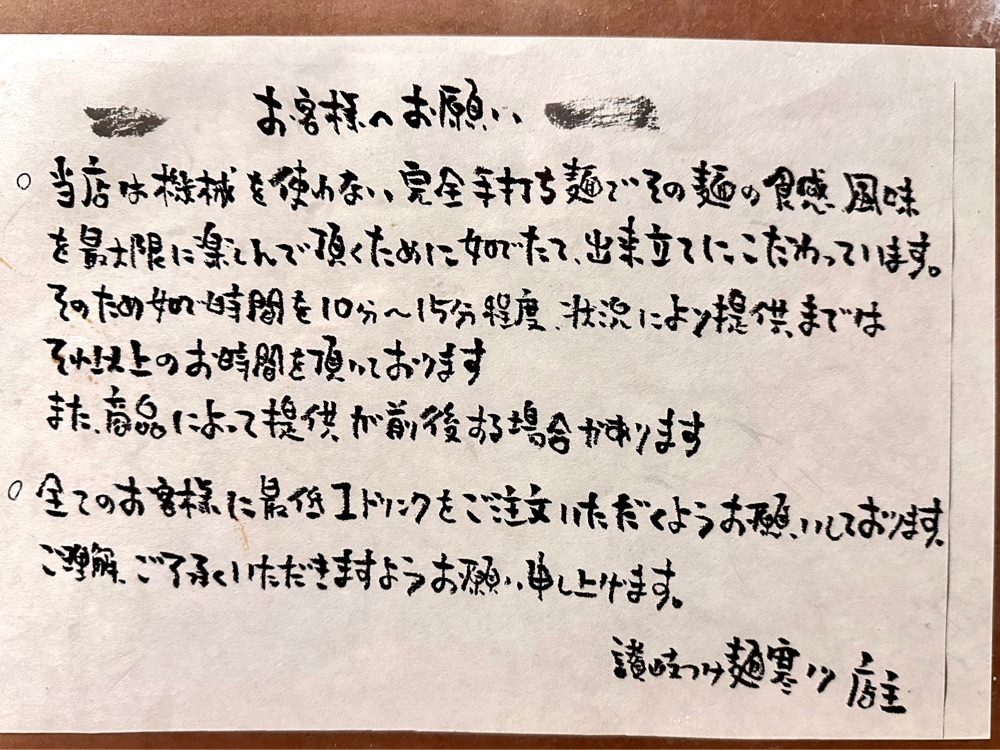 お客様へお願い
○ 当店は機械を使わない、完全手打ち麺でその麺の食感、風味
を最大限に楽しんで頂くために茹でたて、出来立てにこだわっています。
そのため茹で時間を10分〜15分程度、状況により提供までは
それ以上のお時間を頂いております
また、商品によって提供が前後する場合があります
○ 全てのお客様に最低1ドリンクをご注文いただくようお願いしております。
ご理解、ご了承くいただきますようお願い申し上げます。
讃岐つけ麺寒川 店主